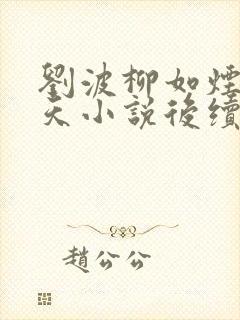 劉波柳如煙
天小說後續
趙公公